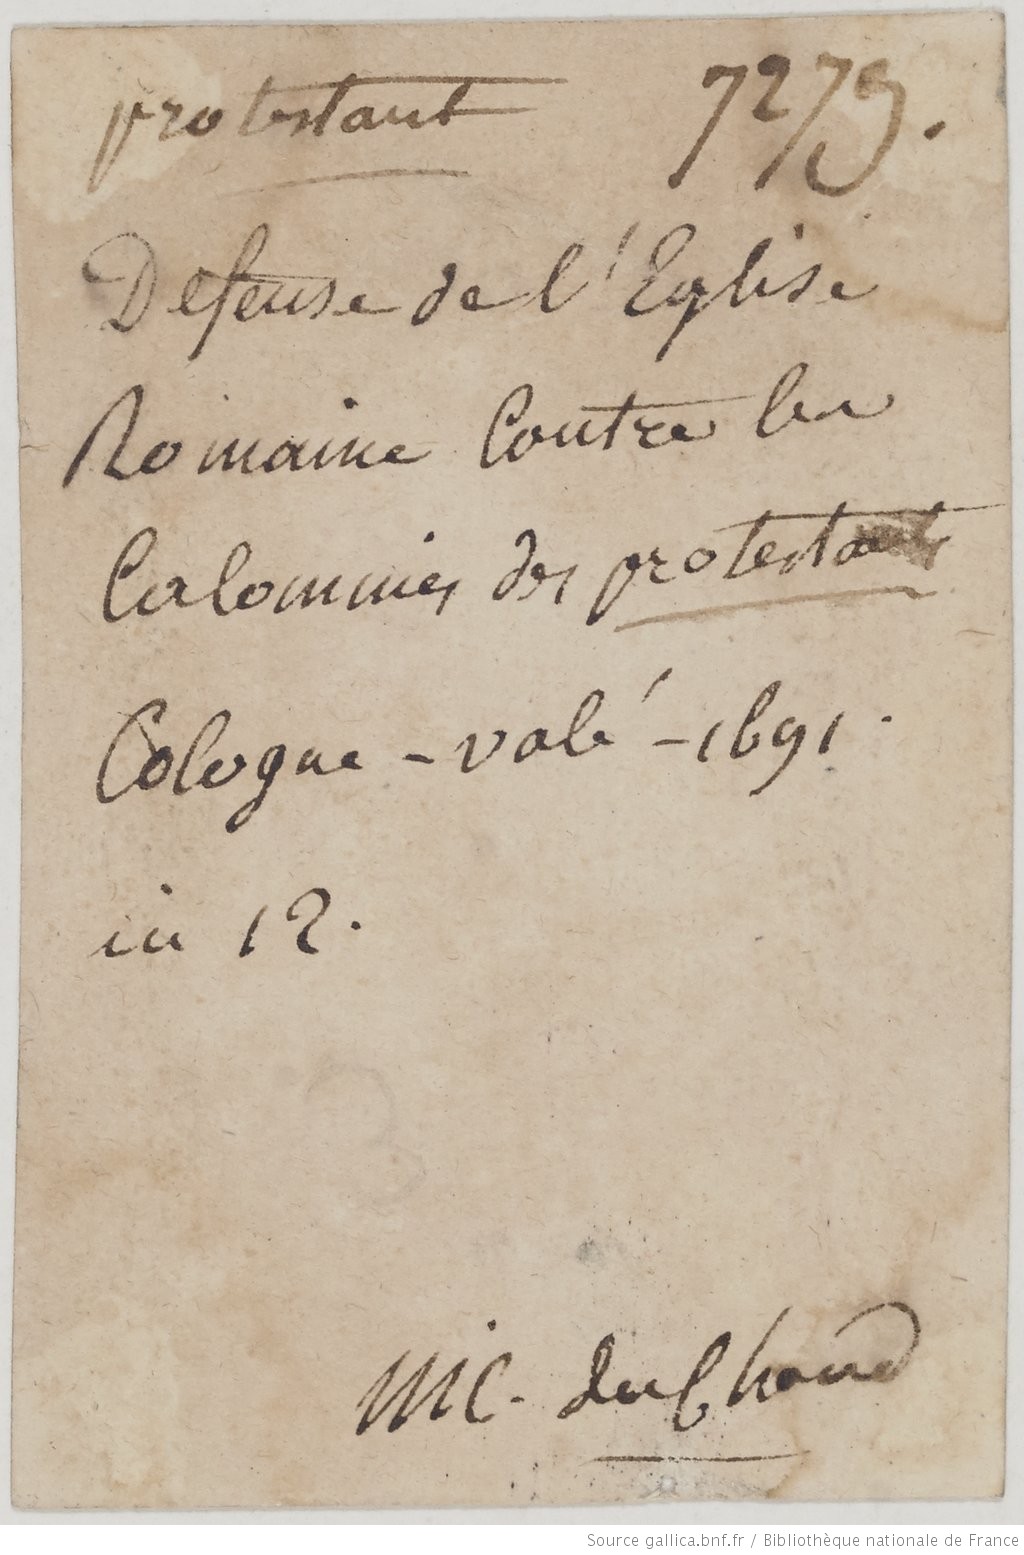 protestant 7279.
Defense de l'Eglise
Romaine Contre les
Calomnies des protestants
Cologne - valé - 1691.
in 12.
Nic. du
Source gallica.bnf.fr / Bibliothèque nationale de France